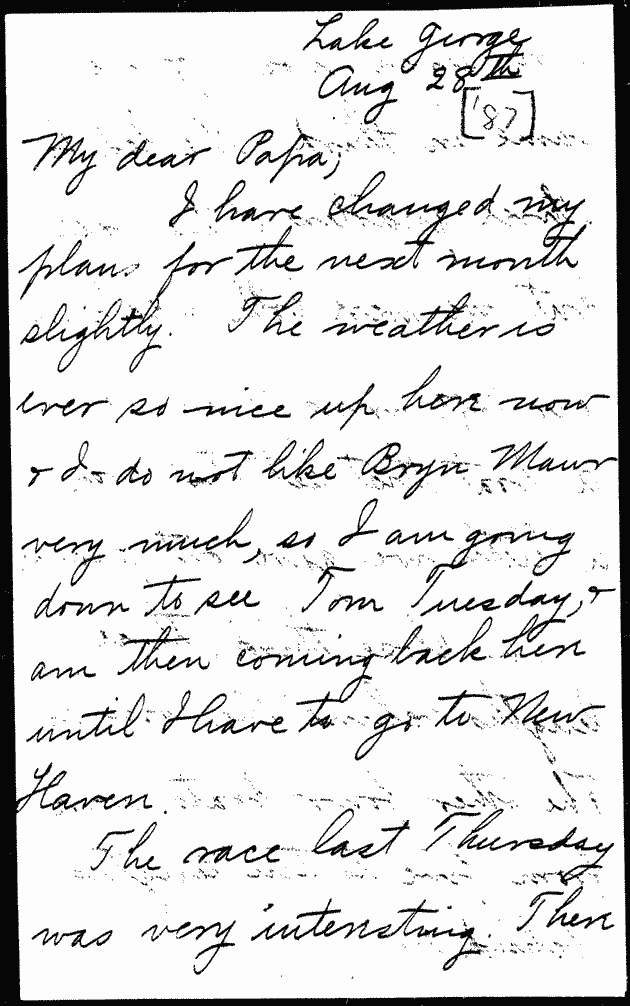 Lake George
Aug 28th
['87]
My dear Papa,
I have changed my
plans for the next month
slightly. The weather is
ever so nice up here now
& I do not like Bryn Mawr
very much, so I am going
down to see Tom Tuesday, &
am then coming back here
until I have to go to New
Haven.
The race last Thursday
was very interesting. There